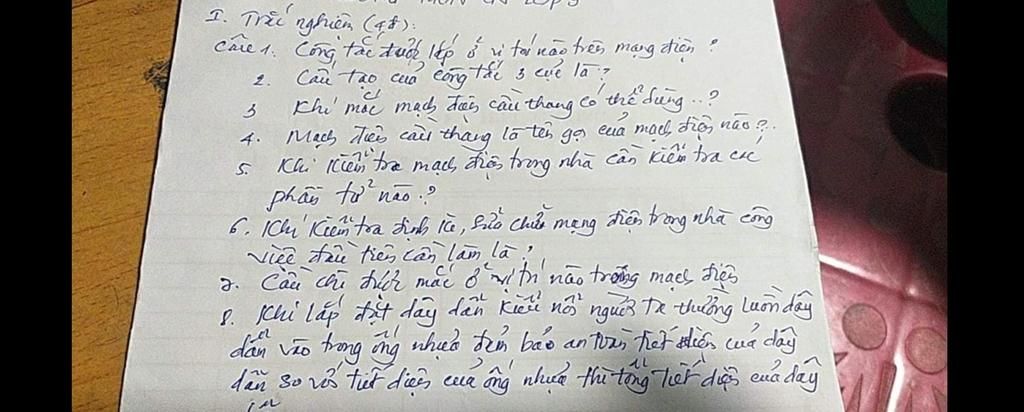 I. Trắc nghiệm (4đ):
Câu 1. Công tắc được lắp ở vị trí nào trên mạng điện?
2. Cấu tạo của công tắc 3 cực là?
3 Khi mắc mạch điện cầu thang có thể dùng..?
4. Mạch điện cầu thang là tên gọi của mạch điện nào?.
5. Khi kiểm tra mạch điện trong nhà cần kiểm tra các
phần tử nào.?
6. Khi kiểm tra định kì, sửa chữa mạng điện trong nhà công
việc đầu tiên cần làm là?
7. Cầu chì được mắc ở vị trí nào trong mạch điện
8. Khi lắp đặt dây dẫn kiểu nổi người ta thường luồn dây
dẫn vào trong ống nhựa đảm bảo an toàn tiết diện của dây
dẫn so với tiết diện của ống nhựa thì tổng tiết diện của dây